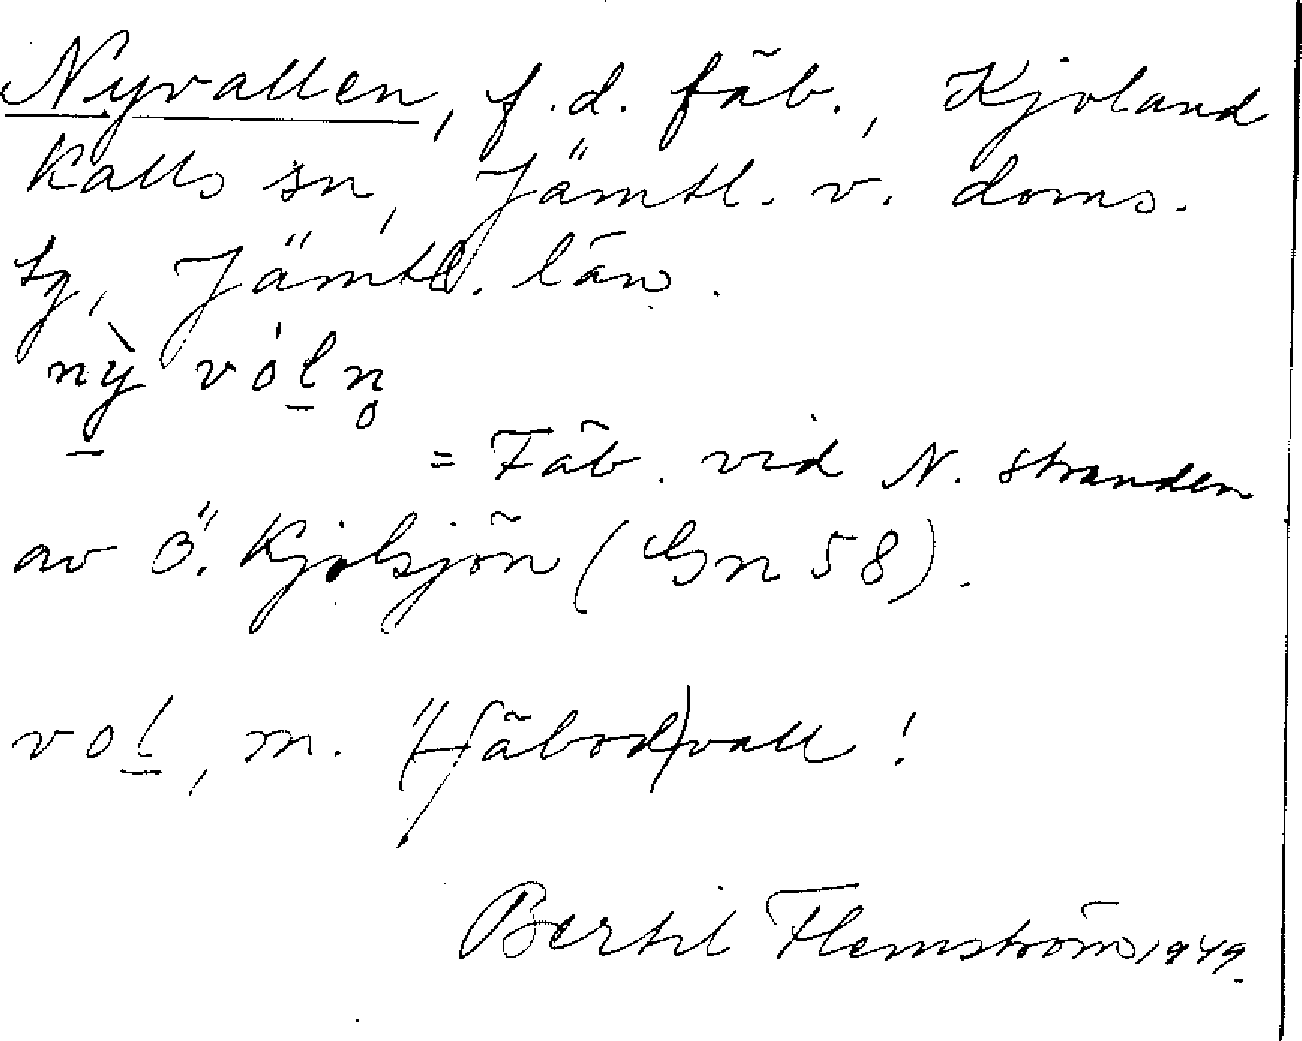 Nyvallen, f.d. fäb., Kjoland
Kalls sn, Jämtl. v. doms.
sg, Jämtl. län.
nỳ vóln̥
= Fäb. vid N. stranden
av Ö. Kjolsjön (Gn 58).
vol, m. "(fäbod)vall!
Bertil Flemström 1949.